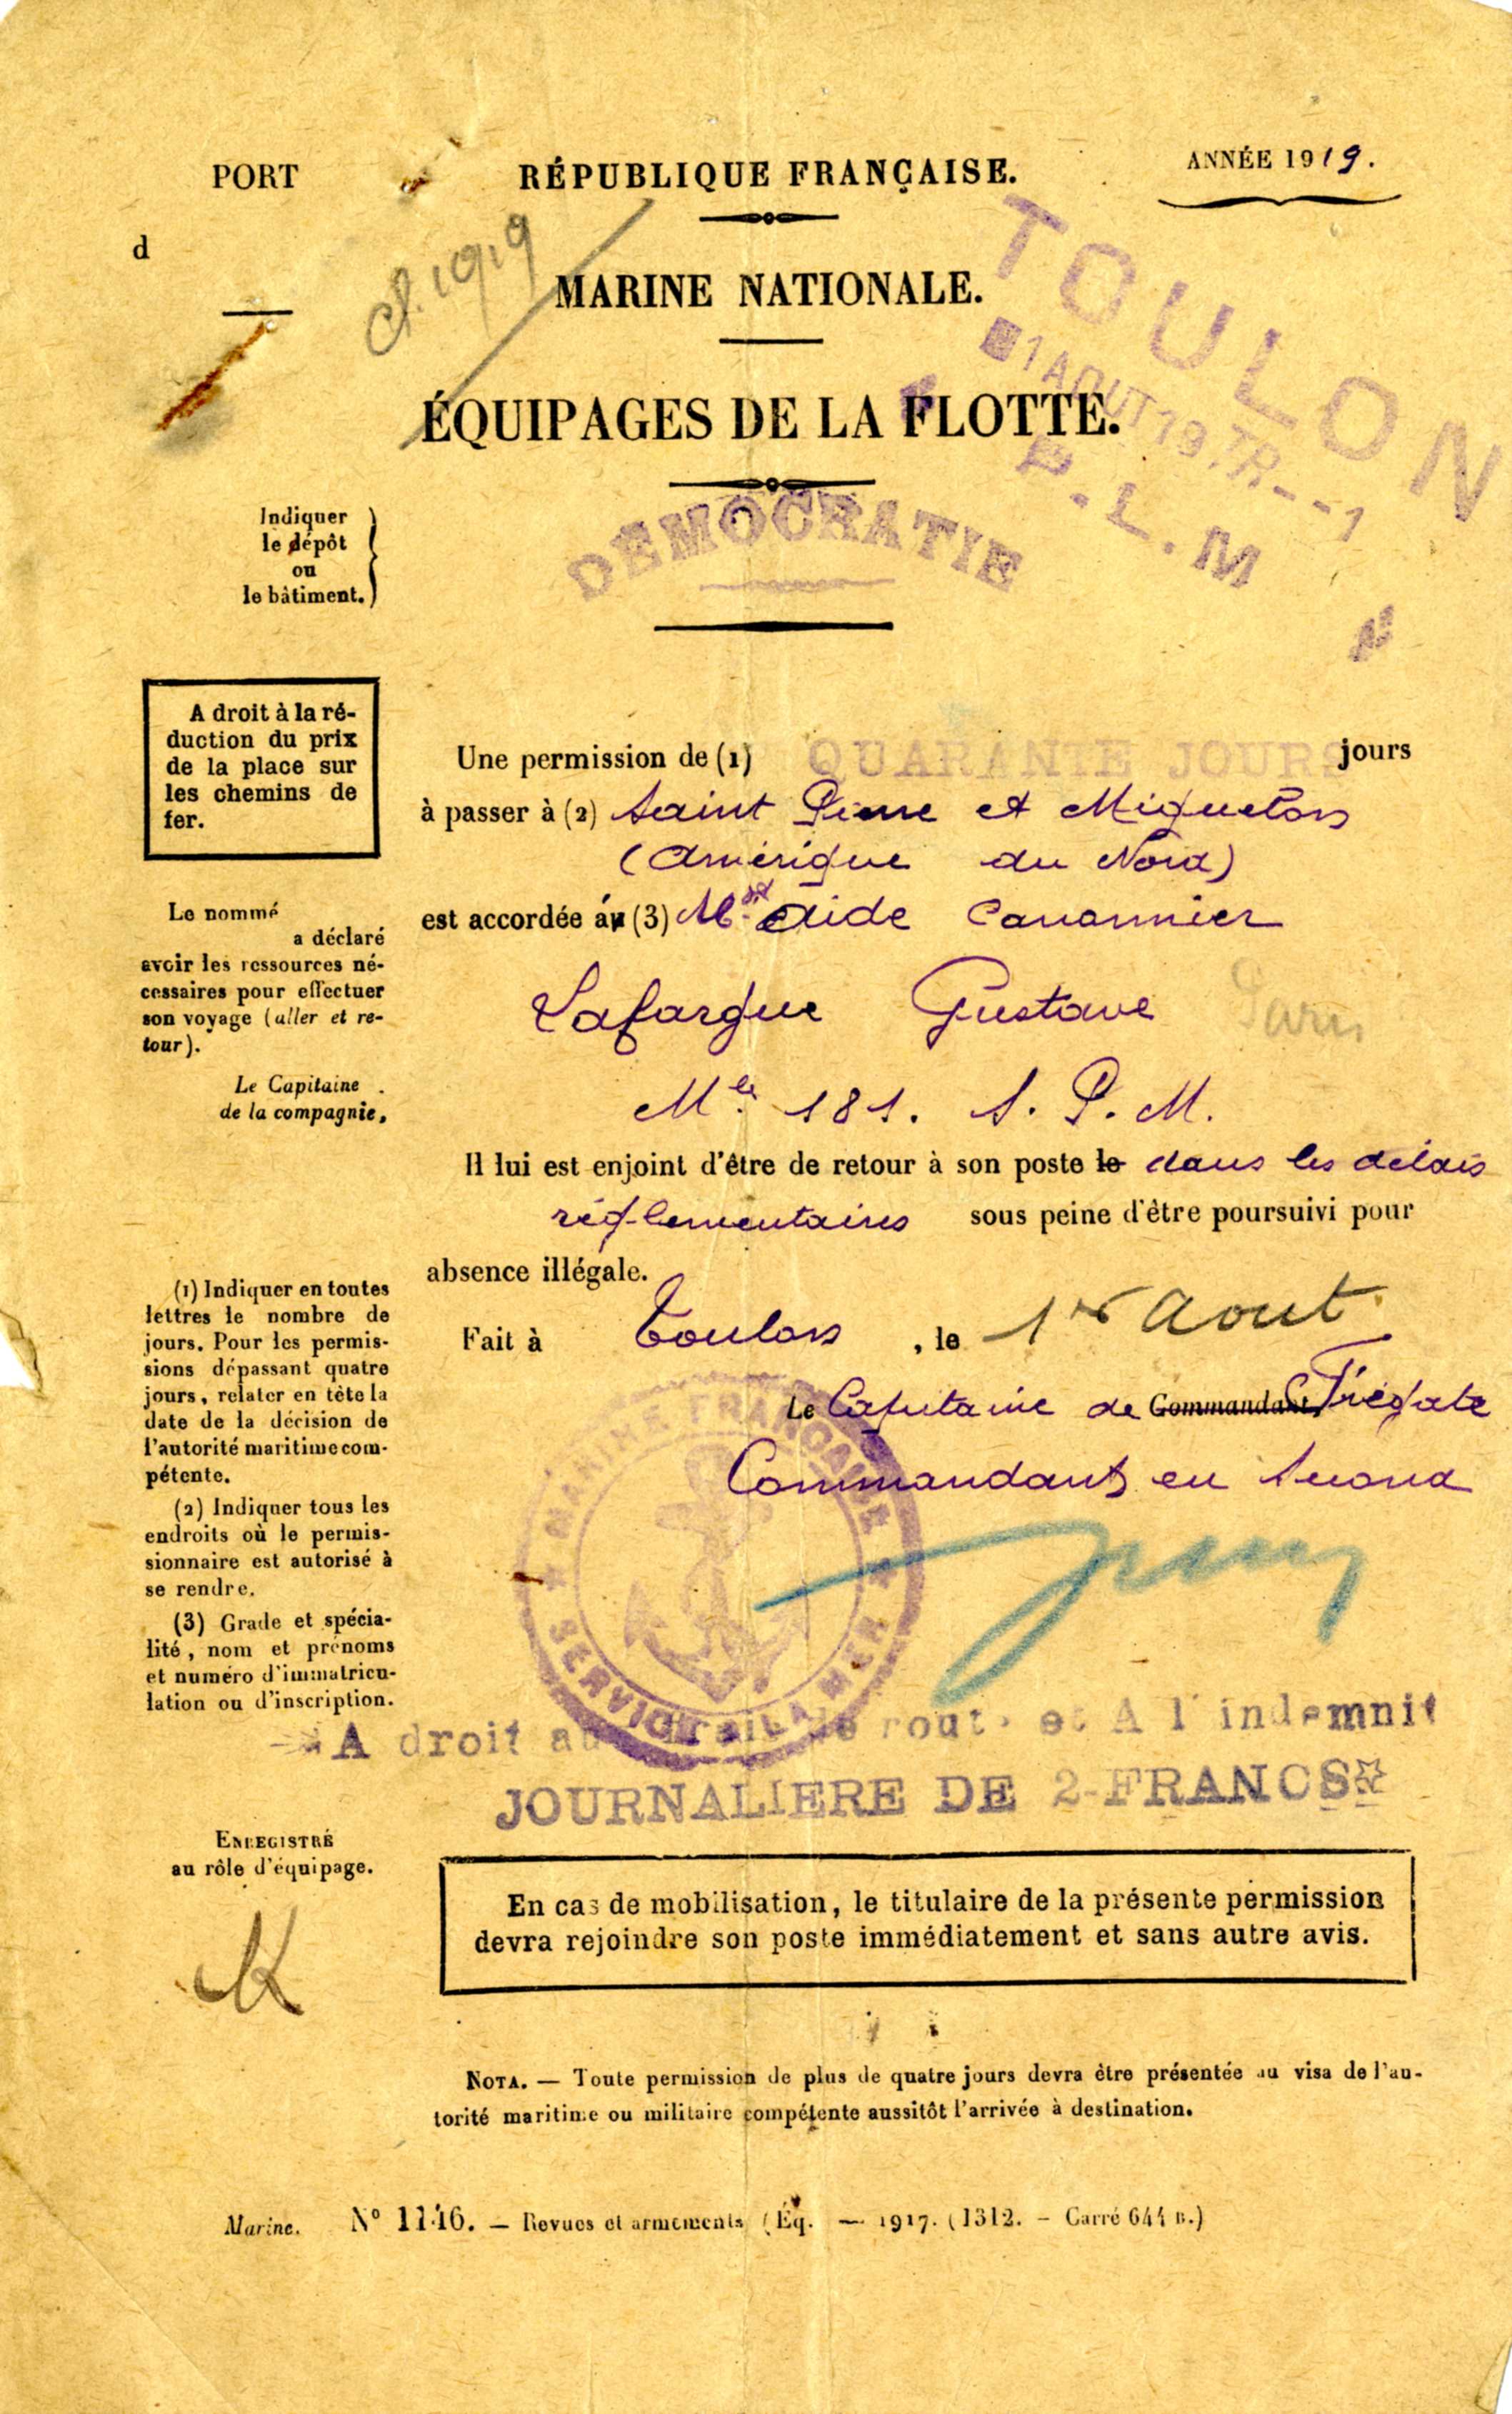 PORT
d
RÉPUBLIQUE FRANÇAISE.
ANNÉE 1919.
Cl. 1919
MARINE NATIONALE.
ÉQUIPAGES DE LA FLOTTE.
TOULON
1 AOUT 19
P.L.M
DEMOCRATIE
Indiquer
le dépôt
ou
le bâtiment.
A droit à la ré-
duction du prix
de la place sur
les chemins de
fer.
Une permission de (1) QUARANTE JOURS jours
à passer à (2) Saint Pierre et Miquelon
(Amérique du Nord)
est accordée au (3) Mot Aide Canonnier
Lafargue Gustave
Paris
Mle 181. S. P. M.
Il lui est enjoint d'être de retour à son poste le dans les délais
réglementaires sous peine d'être poursuivi pour
absence illégale.
Fait à Toulon, le 1er Aout
Le Capitaine de Commandant, Frégate
Commandant en Second
MARINE FRANÇAISE
SERVICE A LA MER
Le nommé
a déclaré
avoir les ressources né-
cessaires pour effectuer
son voyage (aller et re-
tour).
Le Capitaine
de la compagnie,
(1) Indiquer en toutes
lettres le nombre de
jours. Pour les permis-
sions dépassant quatre
jours, relater en tête la
date de la décision de
l'autorité maritime com-
pétente.
(2) Indiquer tous les
endroits où le permis-
sionnaire est autorisé à
se rendre.
(3) Grade et spécia-
lité, nom et prénoms
et numéro d'immatricu-
lation ou d'inscription.
A droit au frais de route et A l'indemnit
JOURNALIERE DE 2-FRANCS
ENREGISTRÉ
au rôle d'équipage.
En cas de mobilisation, le titulaire de la présente permission
devra rejoindre son poste immédiatement et sans autre avis.
NOTA. — Toute permission de plus de quatre jours devra être présentée au visa de l'au-
torité maritime ou militaire compétente aussitôt l'arrivée à destination.
Marine. N° 1146. — Revues et armements (Éq. — 1917. (1312. - Carré 644 B.)